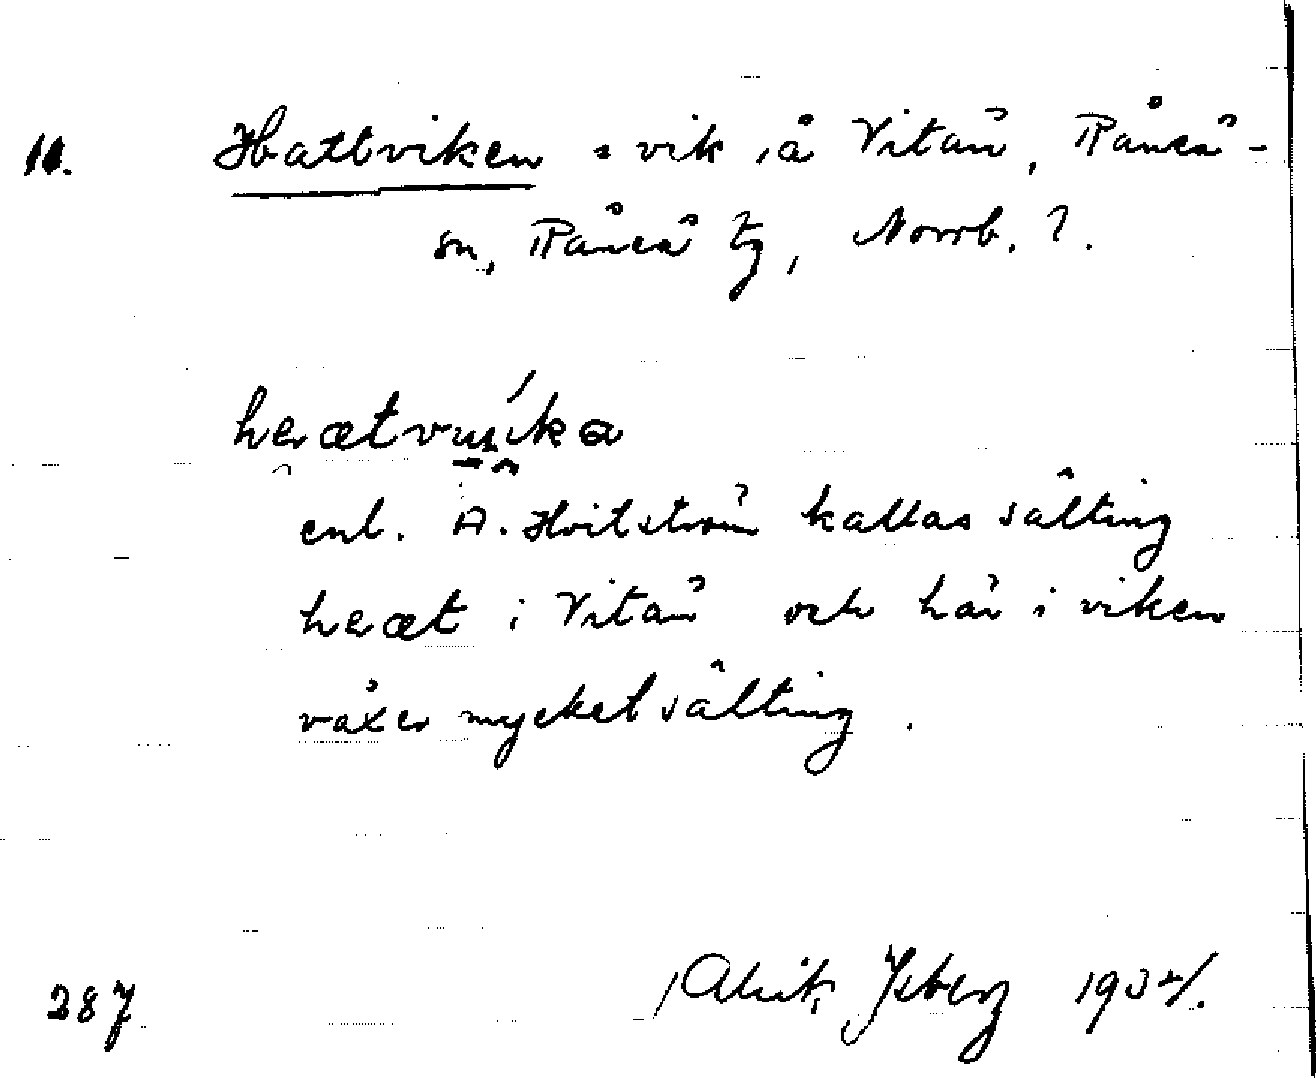 11. Hattviken : vik i å Vitån, Råneå-
sn, Råneå tg, Norrb. l.
enl. A. Hvitström kallas sälting
i Vitån och här i viken
växer mycket sälting.
287 /Alrik Isberg 1934/.